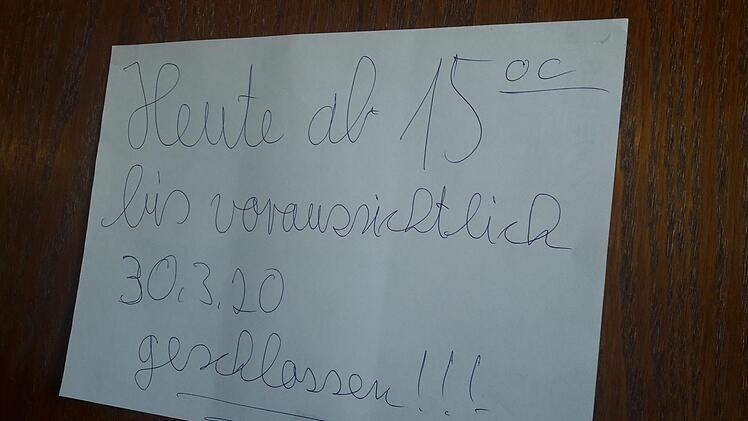 Heute ab 15 00
bis voraussichtlich
30.3.20
geschlossen!!!